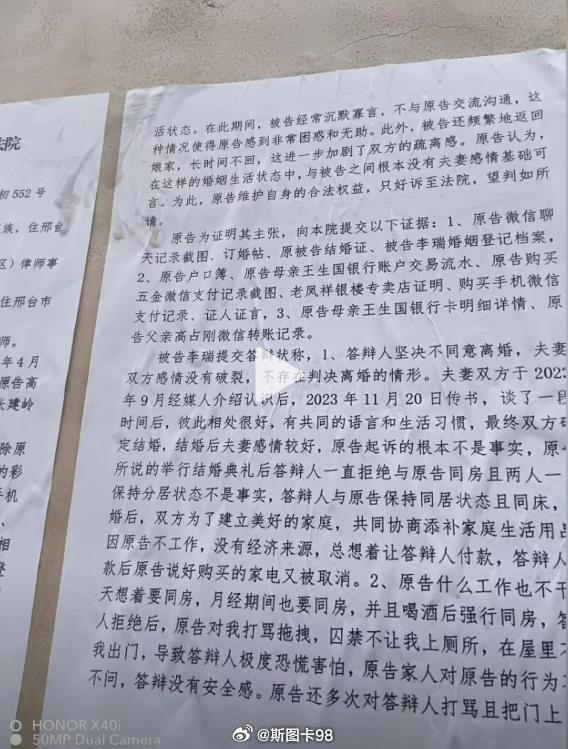 法院
初 552 号
族，住邢台
区）律师事
住邢台市
师。
年 4 月
原告高
张建岭
除原
的彩
手机
、
相
登
活状态。在此期间，被告经常沉默寡言，不与原告交流沟通，这
种情况使得原告感到非常困惑和无助。此外，被告还频繁地返回
娘家，长时间不回，这进一步加剧了双方的疏离感。原告认为，
在这样的婚姻生活状态中，与被告之间根本没有夫妻感情基础可
言。为此，原告维护自身的合法权益，只好诉至法院，望判如所
请。
原告为证明其主张，向本院提交以下证据：1、原告微信聊
天记录截图、订婚帖、原被告结婚证、被告李瑞婚姻登记档案，
2、原告户口簿、原告母亲王生国银行账户交易流水、原告购买
五金微信支付记录截图、老凤祥银楼专卖店证明、购买手机微信
支付记录、证人证言，3、原告母亲王生国银行卡明细详情、原
告父亲高占刚微信转账记录。
被告李瑞提交答辩状称，1、答辩人坚决不同意离婚，夫妻
双方感情没有破裂，不存在判决离婚的情形。夫妻双方于 2023
年 9 月经媒人介绍认识后，2023 年 11 月 20 日传书，谈了一段
时间后，彼此相处很好，有共同的语言和生活习惯，最终双方确
定结婚，结婚后夫妻感情较好，原告起诉的根本不是事实，原告
所说的举行结婚典礼后答辩人一直拒绝与原告同房且两人一
保持分居状态不是事实，答辩人与原告保持同居状态且同床，
婚后，双方为了建立美好的家庭，共同协商添补家庭生活用品
因原告不工作，没有经济来源，总想着让答辩人付款，答辩人
款后原告说好购买的家电又被取消。2、原告什么工作也不干
天想着要同房，月经期间也要同房，并且喝酒后强行同房，答
人拒绝后，原告对我打骂拖拽，囚禁不让我上厕所，在屋里不
我出门，导致答辩人极度恐慌害怕，原告家人对原告的行为不
不问，答辩没有安全感。原告还多次对答辩人打骂且把门上
HONOR X40i
50MP Dual Camera
@斯图卡98